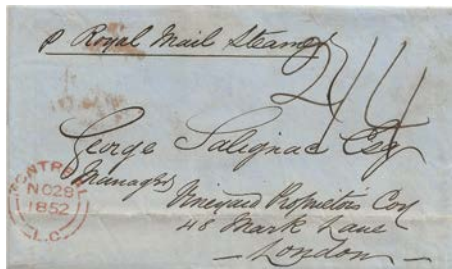 p Royal Mail Steamer
2/4
George Salignac Esq
Manager
Vineyard Proprietors Coy
48 Mark Lane
London
MONTREAL
NO 28
1852
L.C